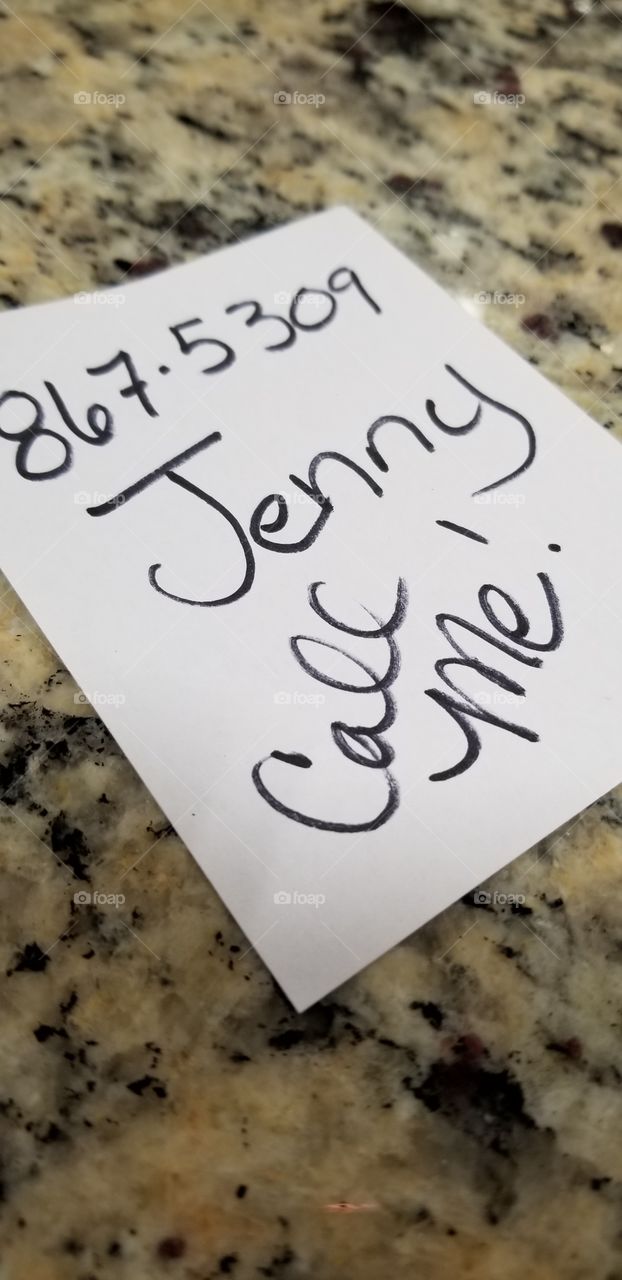 867.5309
Jenny
Call
Me!
foap foap foap
foap foap foap
foap foap foap
foap foap foap
foap foap foap